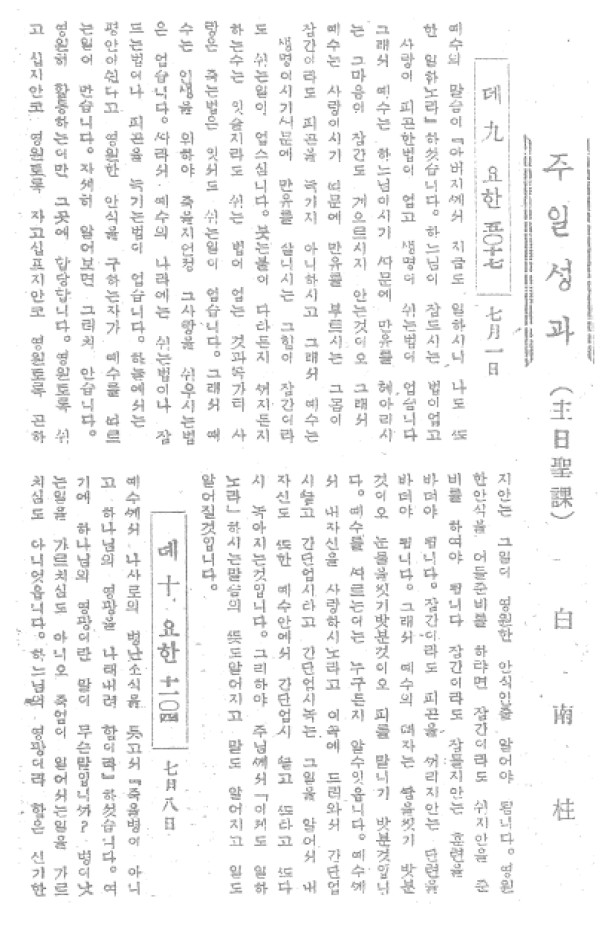 주일성과 (主日聖課) 白南柱
뎨九 요한 五〇十七 七月一日
예수의 말슴이『아버지께서 지금도 일하시니 나도 ᄯᅩ
한 일하노라』하셧습니다。하느님이 잠드시는 법이업고
사랑이 피곤한법이 업고 생명이 쉬는법이 업습니다
그래서 예수는 하느님이시기 ᄯᅢ문에 만유를 헤아리시
는 그마음이 잠간도 게으르시지 안는것이오 그래서
예수는 사랑이시기 ᄯᅡ문에 만유를 부르시는 그몸이
잠간이라도 피곤을 늑기지 아니하시고 그래서 예수는
생명이시기ᄯᅢ문에 만유를 살니시는 그힘이 잠간이라
도 쉬는일이 업스십니다。붓는불이 다라든지 ᄭᅥ지든지
하는수는 잇슬지라도 쉬는 법이 업는 것과ᄯᅩᆨ가티 사
랑은 죽는법은 잇서도 쉬는일이 업습니다。그래서 예
수는 인생을 위하야 죽을지언정 그사랑을 쉬우시는법
은 업습니다。ᄯᅡ라서 예수의 나라에는 쉬는법이나 잠
드는법이나 피곤을 늑기는법이 업습니다。하늘에서는
평안이쉰다고 영원한 안식을 구하는자가 예수를 ᄯᅡ르
는일이 만습니다。자세히 알어보면 그러치 안습니다。
영원히 활동하는이만 그곳에 합당합니다。영원토록 쉬
고 십지안코 영원토록 자고십프지안코 영원토록 곤하
지안는 그일이 영원한 안식인줄 알어야 됩니다。영원
한안식을 어들준비를 하랴면 잠간이라도 쉬지안을 준
비를 하여야 됩니다 잠간이라도 잠들지안는 훈련을
바더야 됩니다。잠간이라도 피곤을 ᄭᅥ리지안는 단련을
바더야 됩니다。그래서 예수의 뎨자는 ᄯᅡᆷ을씻기 밧분
것이오 눈물을씻기밧분것이오 피를 말니기 밧분것입니
다。예수를 ᄯᅡ르는이는 누구든지 알수잇읍니다。예수께
서 내자신을 사랑하시노라고 이속에 드러와서 간단업
시ᄭᅳᆯ고 간단업시타고 간단업시녹는 그일을 알어서 내
자신도 ᄯᅩ한 예수안에서 간단업시 ᄭᅳᆯ고 ᄯᅩ타고 ᄯᅩ다
시 녹아지는것입니다。그리하야 주님께서『이제도 일하
노라』하시는말슴의 ᄯᅳᆺ도알어지고 말도 알어지고 일도
알어질것입니다。
뎨十 요한 十一〇四 七月八日
예수께서 나사로의 병난소식을 듯고서『죽을병이 아니
고 하나님의 영광을 나태내려 함이라』하셧습니다。여
기에 하나님의 영광이란 말이 무슨말입니ᄭᅡ? 병이낫
는일을 가르치심도 아니오 죽엄이 일어서는일을 가르
치심도 아니엇읍니다。하느님의 영광이라 함은 신기한